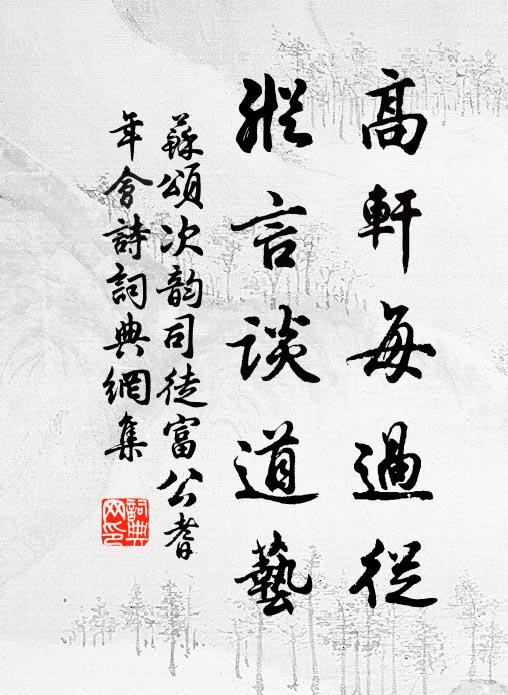 高軒每過從
縱言談道藝
蘇頌次韵司徒富公耆
年會詩詞典網集
詞典網印